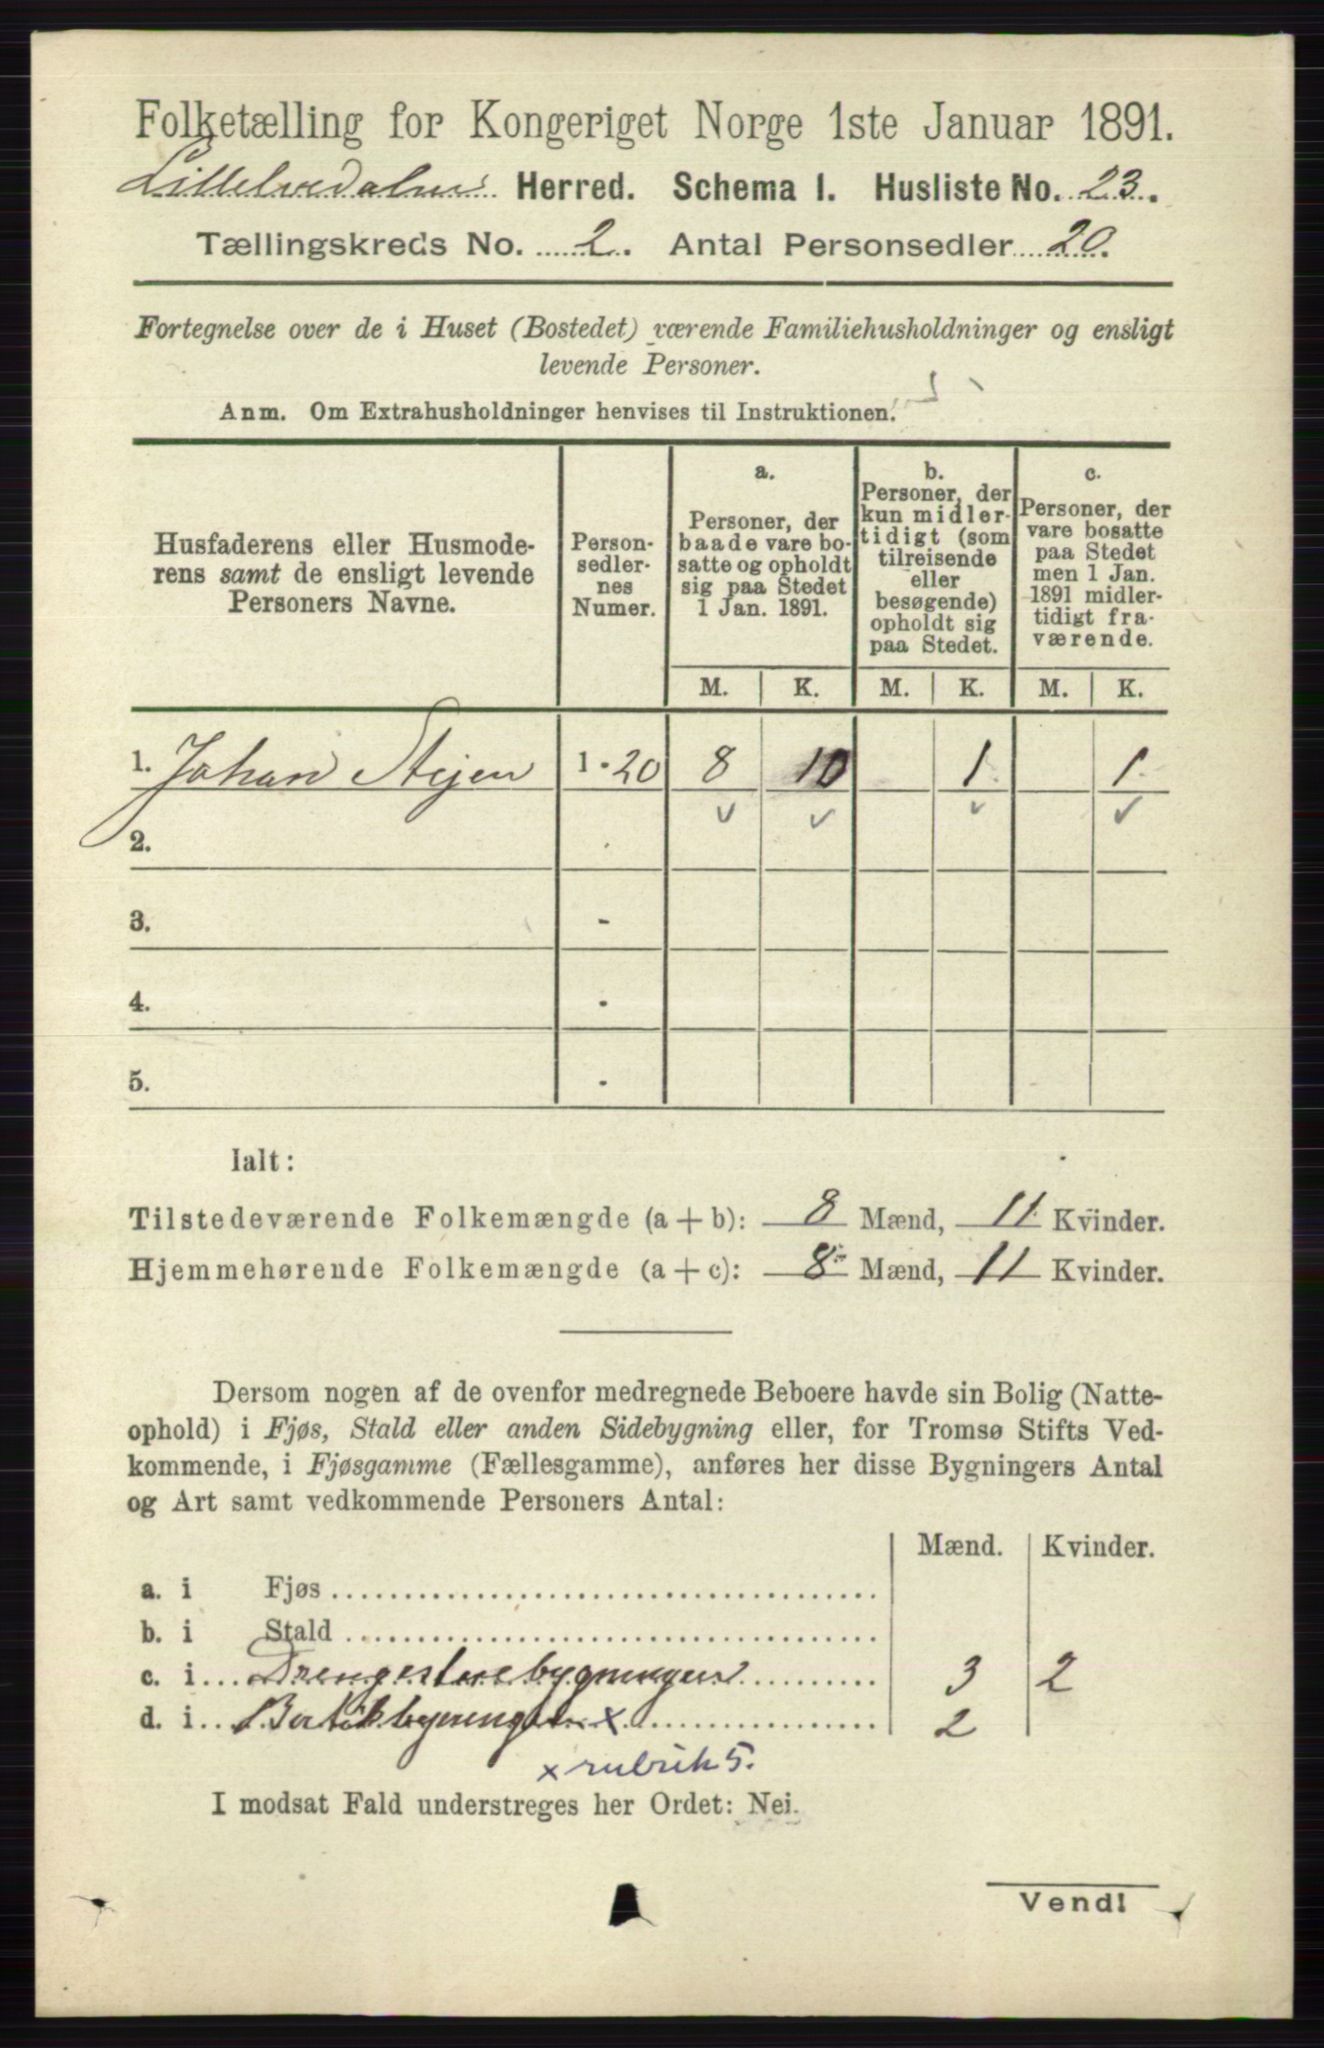 Folketælling for Kongeriget Norge 1ste Januar 1891.
Lillelvedalens Herred. Schema I. Husliste No. 23.
Tællingskreds No. 2. Antal Personsedler 20.
Fortegnelse over de i Huset (Bostedet) værende Familiehusholdninger og ensligt
levende Personer.
Anm. Om Extrahusholdninger henvises til Instruktionen.
Husfaderens eller Husmode-
rens samt de ensligt levende
Personers Navne.
Person-
sedler-
nes
Numer.
a.
Personer, der
baade vare bo-
satte og opholdt
sig paa Stedet
1 Jan. 1891.
b.
Personer, der
kun midler-
tidigt (som
tilreisende
eller
besøgende)
opholdt sig
paa Stedet.
c.
Personer, der
vare bosatte
paa Stedet
men 1 Jan.
1891 midler-
tidigt fra-
værende.
M. K. M. K. M. K.
1. Johan Steien 1 - 20 8 10 1 1
2.
3. -
4. -
5. -
Ialt:
Tilstedeværende Folkemængde (a + b): 8 Mænd, 11 Kvinder.
Hjemmehørende Folkemængde (a + c): 8 Mænd, 11 Kvinder.
Dersom nogen af de ovenfor medregnede Beboere havde sin Bolig (Natte-
ophold) i Fjøs, Stald eller anden Sidebygning eller, for Tromsø Stifts Ved-
kommende, i Fjøsgamme (Fællesgamme), anføres her disse Bygningers Antal
og Art samt vedkommende Personers Antal:
Mænd. Kvinder.
a. i Fjøs
b. i Stald
c. i Drengestuebygningen 3 2
d. i x 2
x rubrik 5.
I modsat Fald understreges her Ordet: Nei.
Vend!